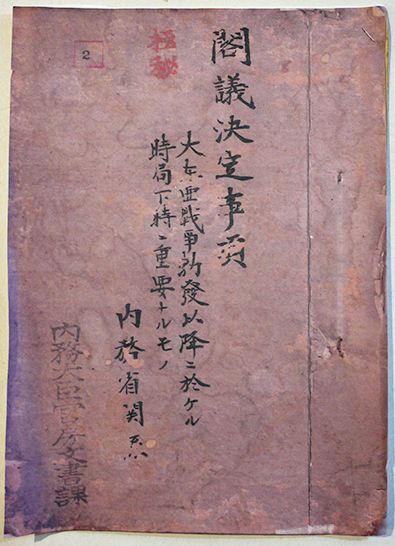 閣議決定事項
極秘
2
大東亜戦争勃発以降ニ於ケル
時局下特ニ重要ナルモノ
内務省関係
内務大臣官房文書課